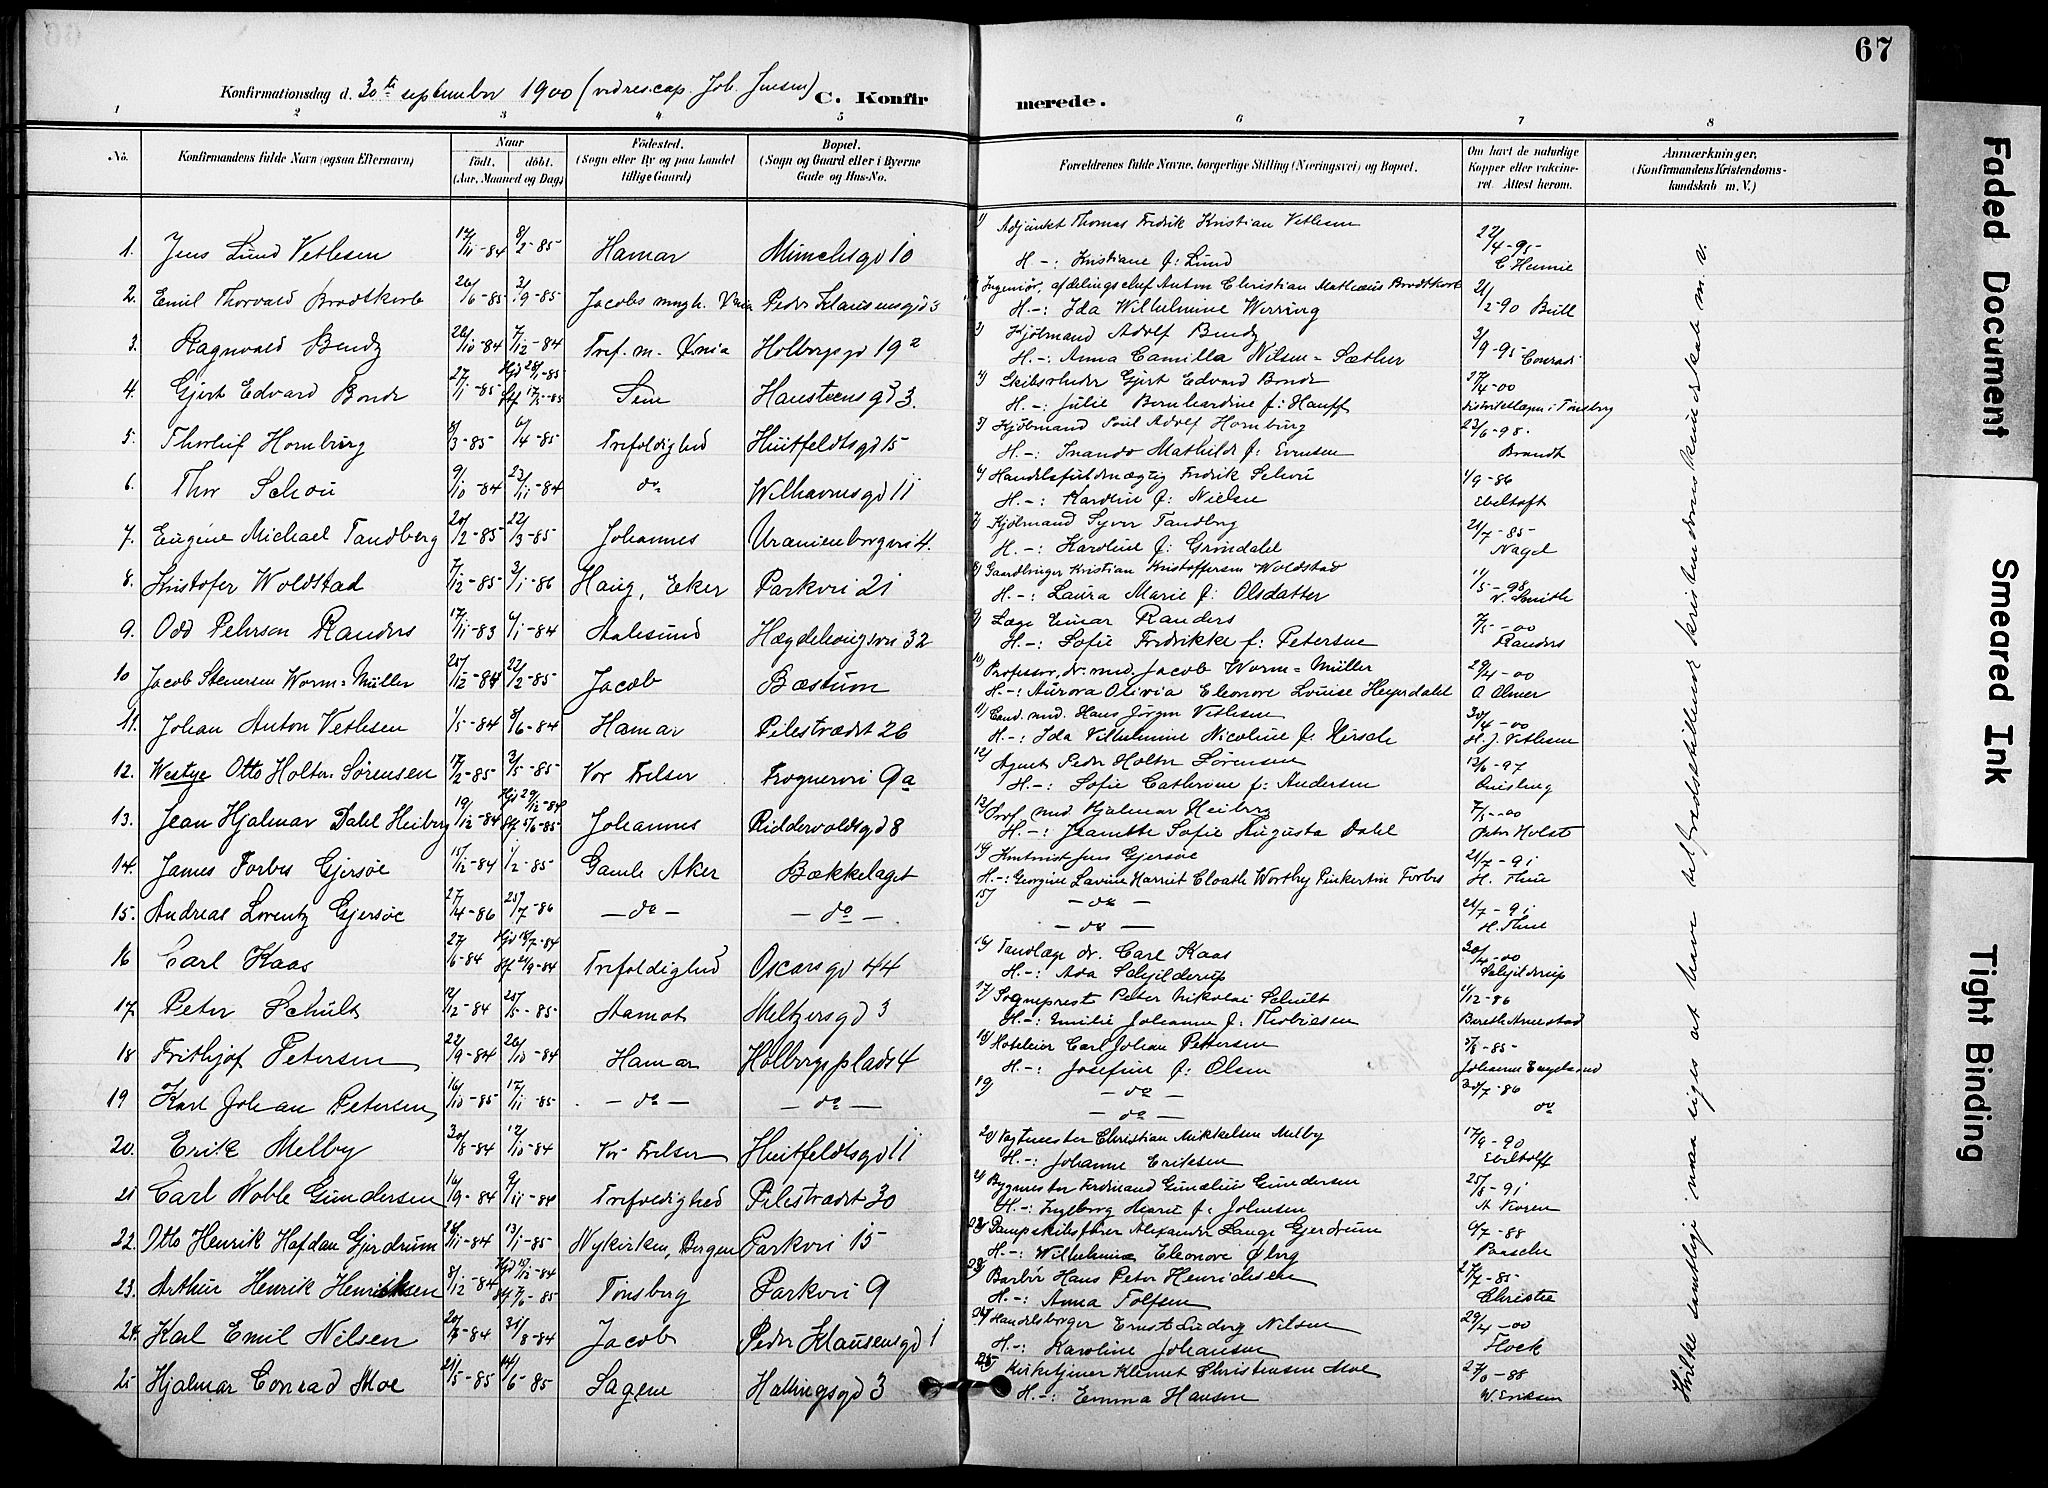 67
Konfirmationsdag d. 30te september 1900 (ved res. cap. Joh. Jensen) C. Konfirmerede.
1 2 3 4 5 6 7 8
No. Konfirmandens fulde Navn (ogsaa Efternavn) Naar født. døbt. (Aar, Maaned og Dag) Fødested. (Sogn eller By og paa Landet tillige Gaard) Bopæl. (Sogn og Gaard eller i Byerne Gade og Hus-No. Forældrenes fulde Navne, borgerlige Stilling (Næringsvei) og Bopæl. Om havt de naturlige Kopper eller vakcineret. Attest herom. Anmærkninger, (Konfirmandens Kristendomskundskab m. V.)
1. Jens Lund Vetlesen 17/11-84 8/2-85 Hamar Munchsgd 10
1) Adjunkt Thomas Fredrik Kristian Vetlesen 22/4-95
H.-: Kristiane f: Lund
2. Emil Thorvald Brodtkorb 26/6-85 2/9-85 Jacobs mngh. Peder Klausensgd 3
Ingeniør, afdelingschef Anton Christian Mathæus Brodtkorb 21/2-90 Bull
H.-: Ida Wilhelmine Werring
3. Ragnvald Bendz 26/10-84 7/12-84 Tref. m. Xnia Holbergsgd 19a
3) Kjøbmand Adolf Bendz 3/9-95 Conradi
H.-: Anna Camilla Nilsen-Sæther
4. Gjert Edvard Bonde 27/1-85 Hjd 28/1-85 Stf 17/5-85 Sem Hansteensgd 3.
4) Skibsreder Gjert Edvard Bonde 27/4-00
H.-: Julie Bernhardine f: Hauff distriktslægen i Tønsberg
5. Thorleif Homburg 8/3-85 6/4-85 Trefoldighed Huitfeldtsgd 15
5) Kjøbmand Poul Adolf Homburg 23/6-98.
H.-: Mathilde f: Evensen Brandt
6. Thor Schou 9/10-84 23/11-84 do Wilhavensgd 11
6) Handelsfuldmægtig Fredrik Schou 1/9-86
H.-: Karoline f: Nielsen Ebeltoft
7. Eugéne Michael Tandberg 20/2-85 22/3-85 Johannes Uranienborgvei 4.
7) Kjøbmand Syver Tandberg 21/7-85
H.-: Karoline f: Grøndahl Nagel
8. Kristofer Woldstad 7/12-85 3/1-86 Haug, Eker Parkvei 21
8) Gaardbruger Kristian Kristoffersen Woldstad 11/5-98
H.-: Laura Marie f: Olsdatter
9. Odd Petersen Randers 17/11-83 6/1-84 Aalesund Hægdehougsvei 32
9) Læge Einar Randers 7/5-00
H.-: Sofie Fredrikke f: Petersen Randers
10 Jacob Stenersen Worm-Müller 25/12-84 22/2-85 Jacob Bæstum
10) Professor, dr. med. Jacob Worm-Müller 29/4-00
H.-: Aurora Olivia Eleonore Louise Heyerdahl
11. Johan Anton Vetlesen 1/5-84 8/6-84 Hamar Pilestrædet 26
11) Cand. med. Hans Jørgen Vetlesen 30/4-00
H.-: Ida Vilhelmine Nicoline f. Hirsch H. J. Vetlesen
12. Westye Otto Holter-Sørensen 17/2-85 3/5-85 Vor Frelser Frognervei 9a
12) Agent Peder Holter Sørensen 12/6-97
H.-: Sofie Cathrine f: Andersen Quisling
13. Jean Hjalmar Dahl Heiberg 19/12-84 Hjd 29/12-84 Stf 5/6-85 Johannes Riddervoldsgd 8
13) Prof. med Hjalmar Heiberg 7/5-00
H.-: Jeanette Sofie Augusta Dahl Peter Holst
14. James Forbes Gjersøe 15/12-84 1/2-85 Gamle Aker Bækkelaget
14) Jens Gjersøe 21/7-91
H.-: Georgine Lavine Harriet Cloath Worthy Pinkerton Forbes H. Thue
15. Andreas Lorentz Gjersøe 27/4-86 25/7-86 — do — — do —
15) — do — 21/7-91
— do — H. Thue
16 Carl Kaas 27/6-84 Hjd 18/7-84 Stf 21/9-84 Trefoldighed Oscarsgd 44
16) Tandlæge dr. Carl Kaas 30/4-00
H.-: Ada Schjelderup Schjelderup
17. Peter Schult 12/12-84 25/5-85 Aamot Meltzersgd 3
17) Sogneprest Peter Nikolai Schult 11/12-86
H.-: Emilie Johanne f: Thobiesen
18 Frithjof Petersen 22/9-84 26/10-84 Hamar Holbergsplads 4
18) Hoteleier Carl Johan Pettersen 5/8-85
H.-: Josefine f: Olsen
19 Karl Johan Petersen 16/10-85 17/11-85 — do — — do —
19) — do — 30/7-86
— do — do
20. Erik Melby 30/8-84 12/10-84 Vor Frelser Huitfeldtsgd 11
20) Vagtmester Christian Mikkelsen Melby 17/9-90
H.-: Johanne Eriksen Ebeltoft
21 Carl Noble Gundersen 16/9-84 9/11-84 Trefoldighed Pilestrædet 30
21) Bygmester Ferdinand Gundersen 25/8-91
H.-: Ingeborg Marie f: Johnsen
22. Otto Henrik Hafdan Gjerdrum 28/11-84 13/1-85 Nykirken, Bergen Parkvei 15
22) Dampskibsfører Alexander Lange Gjerdrum 6/7-88
H.-: Wilhelmine Eleonore Øberg Paasche
23. Arthur Henrik Henriksen 8/12-84 Hjd 15/12-84 Stf 7/6-85 Tønsberg Parkvei 9
23) Barber Hans Peter Henriksen 27/7-85
H.-: Anna Tolfsen Christie
24. Karl Emil Nilsen 20/7-84 31/8-84 Jacob Peder Klausensgd 1
24) Handelsborger Ernst Ludvig Nilsen 29/4-00
H.-: Karoline Johansen Flock
25 Hjalmar Conrad Moe 21/5-85 14/6-85 Sagene Hallingsgd 3
25) Kirketjener Klemet Christensen Moe
H.-: Emma Hansen W. Eriksen
Hvilke samtlige maa siges at have tilfredsstillende kristendomskundskab m. v.
Faded Document
Smeared Ink
Tight Binding